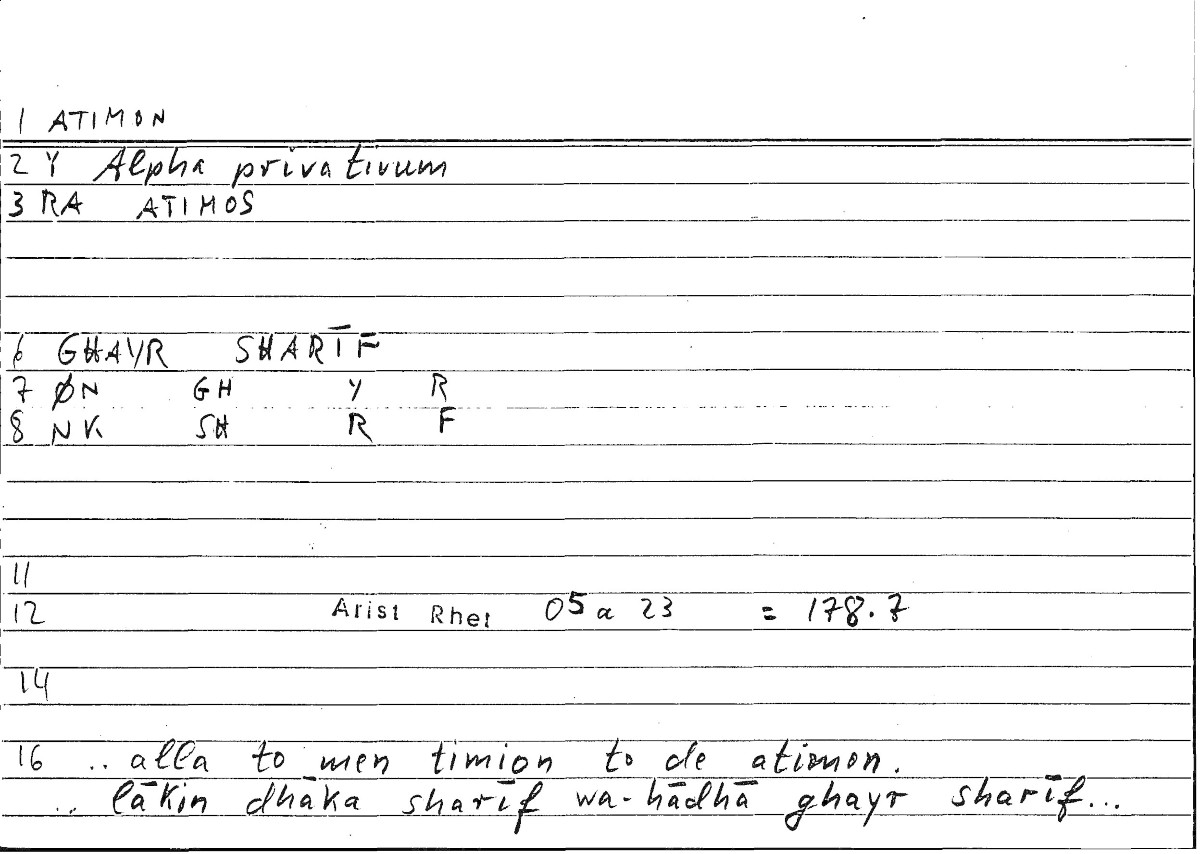 1 ATIMON
2 Y Alpha privativum
3 RA ATIMOS
6 GHAYR SHARĪF
7 ØN GH Y R
8 NK SH R F
11
12 Arist Rhet 05a 23 = 178.7
14
16 .. alla to men timion to de atimon.
.. lākin dhāka sharīf wa-hādhā ghayr sharīf...